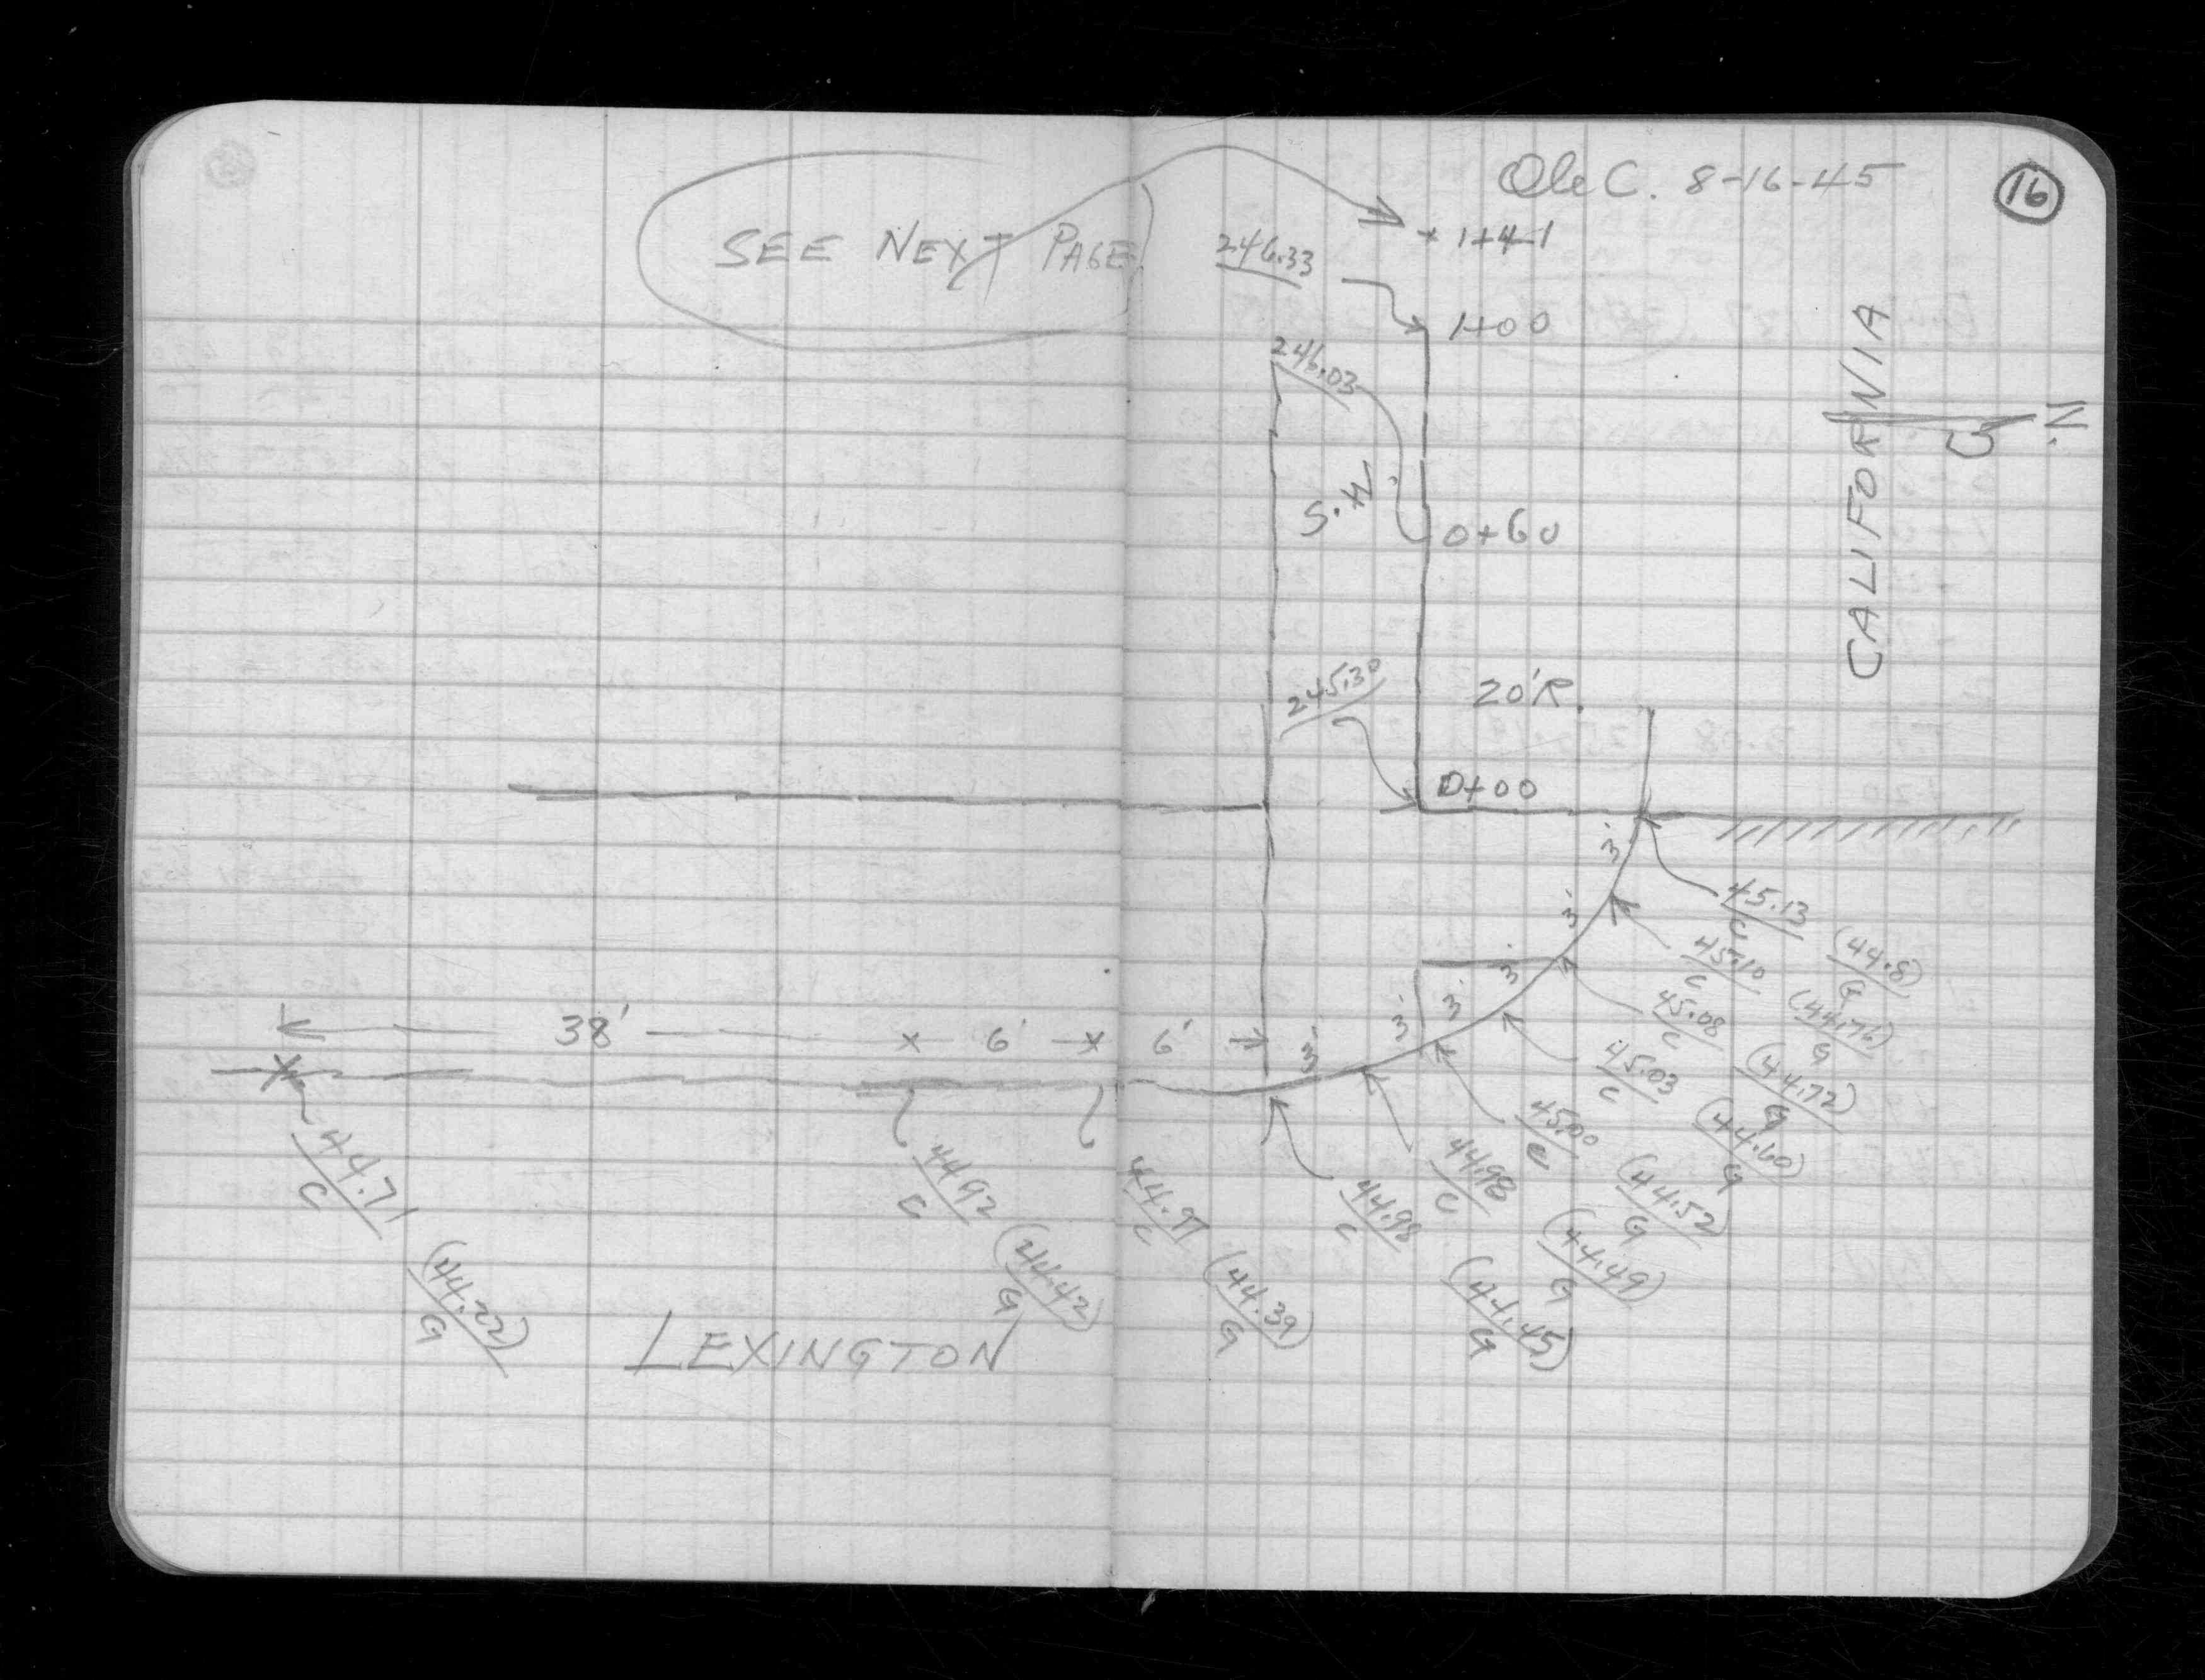 Ole C. 8-16-45
16
SEE NEXT PAGE
1+41
246.33
1+00
246.03
CALIFORNIA
N.
S.W.
0+60
245.30
20'R.
0+00
3'
3'
3'
3'
3'
3'
38'
6'
6'
45.13
C
(44.8)
G
45.10
C
(44.76)
G
45.08
C
(44.72)
G
45.03
C
(44.60)
G
45.00
C
(44.52)
G
44.98
C
(44.49)
G
44.98
C
(44.45)
G
44.97
C
(44.39)
G
44.92
C
(44.42)
G
44.71
C
(44.22)
G
LEXINGTON